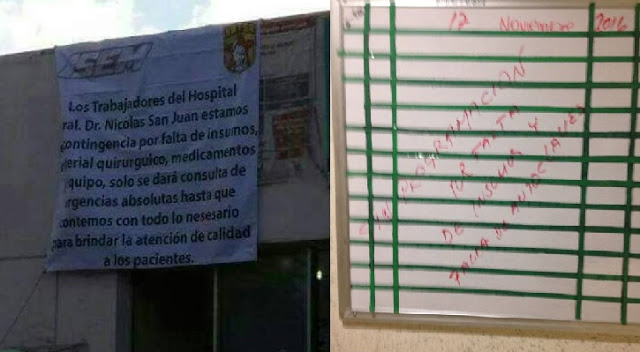 SEM
Los Trabajadores del Hospital
ral. Dr. Nicolas San Juan estamos
contingencia por falta de insumos,
terial quirurguico, medicamentos
equipo, solo se dará consulta de
urgencias absolutas hasta que
contemos con todo lo nesesario
para brindar la atención de calidad
a los pacientes.
12 Noviembre 2016
SIN PROGRAMACIÓN
POR FALTA
DE INSUMOS Y
FALTA DE AUTOCLAVES